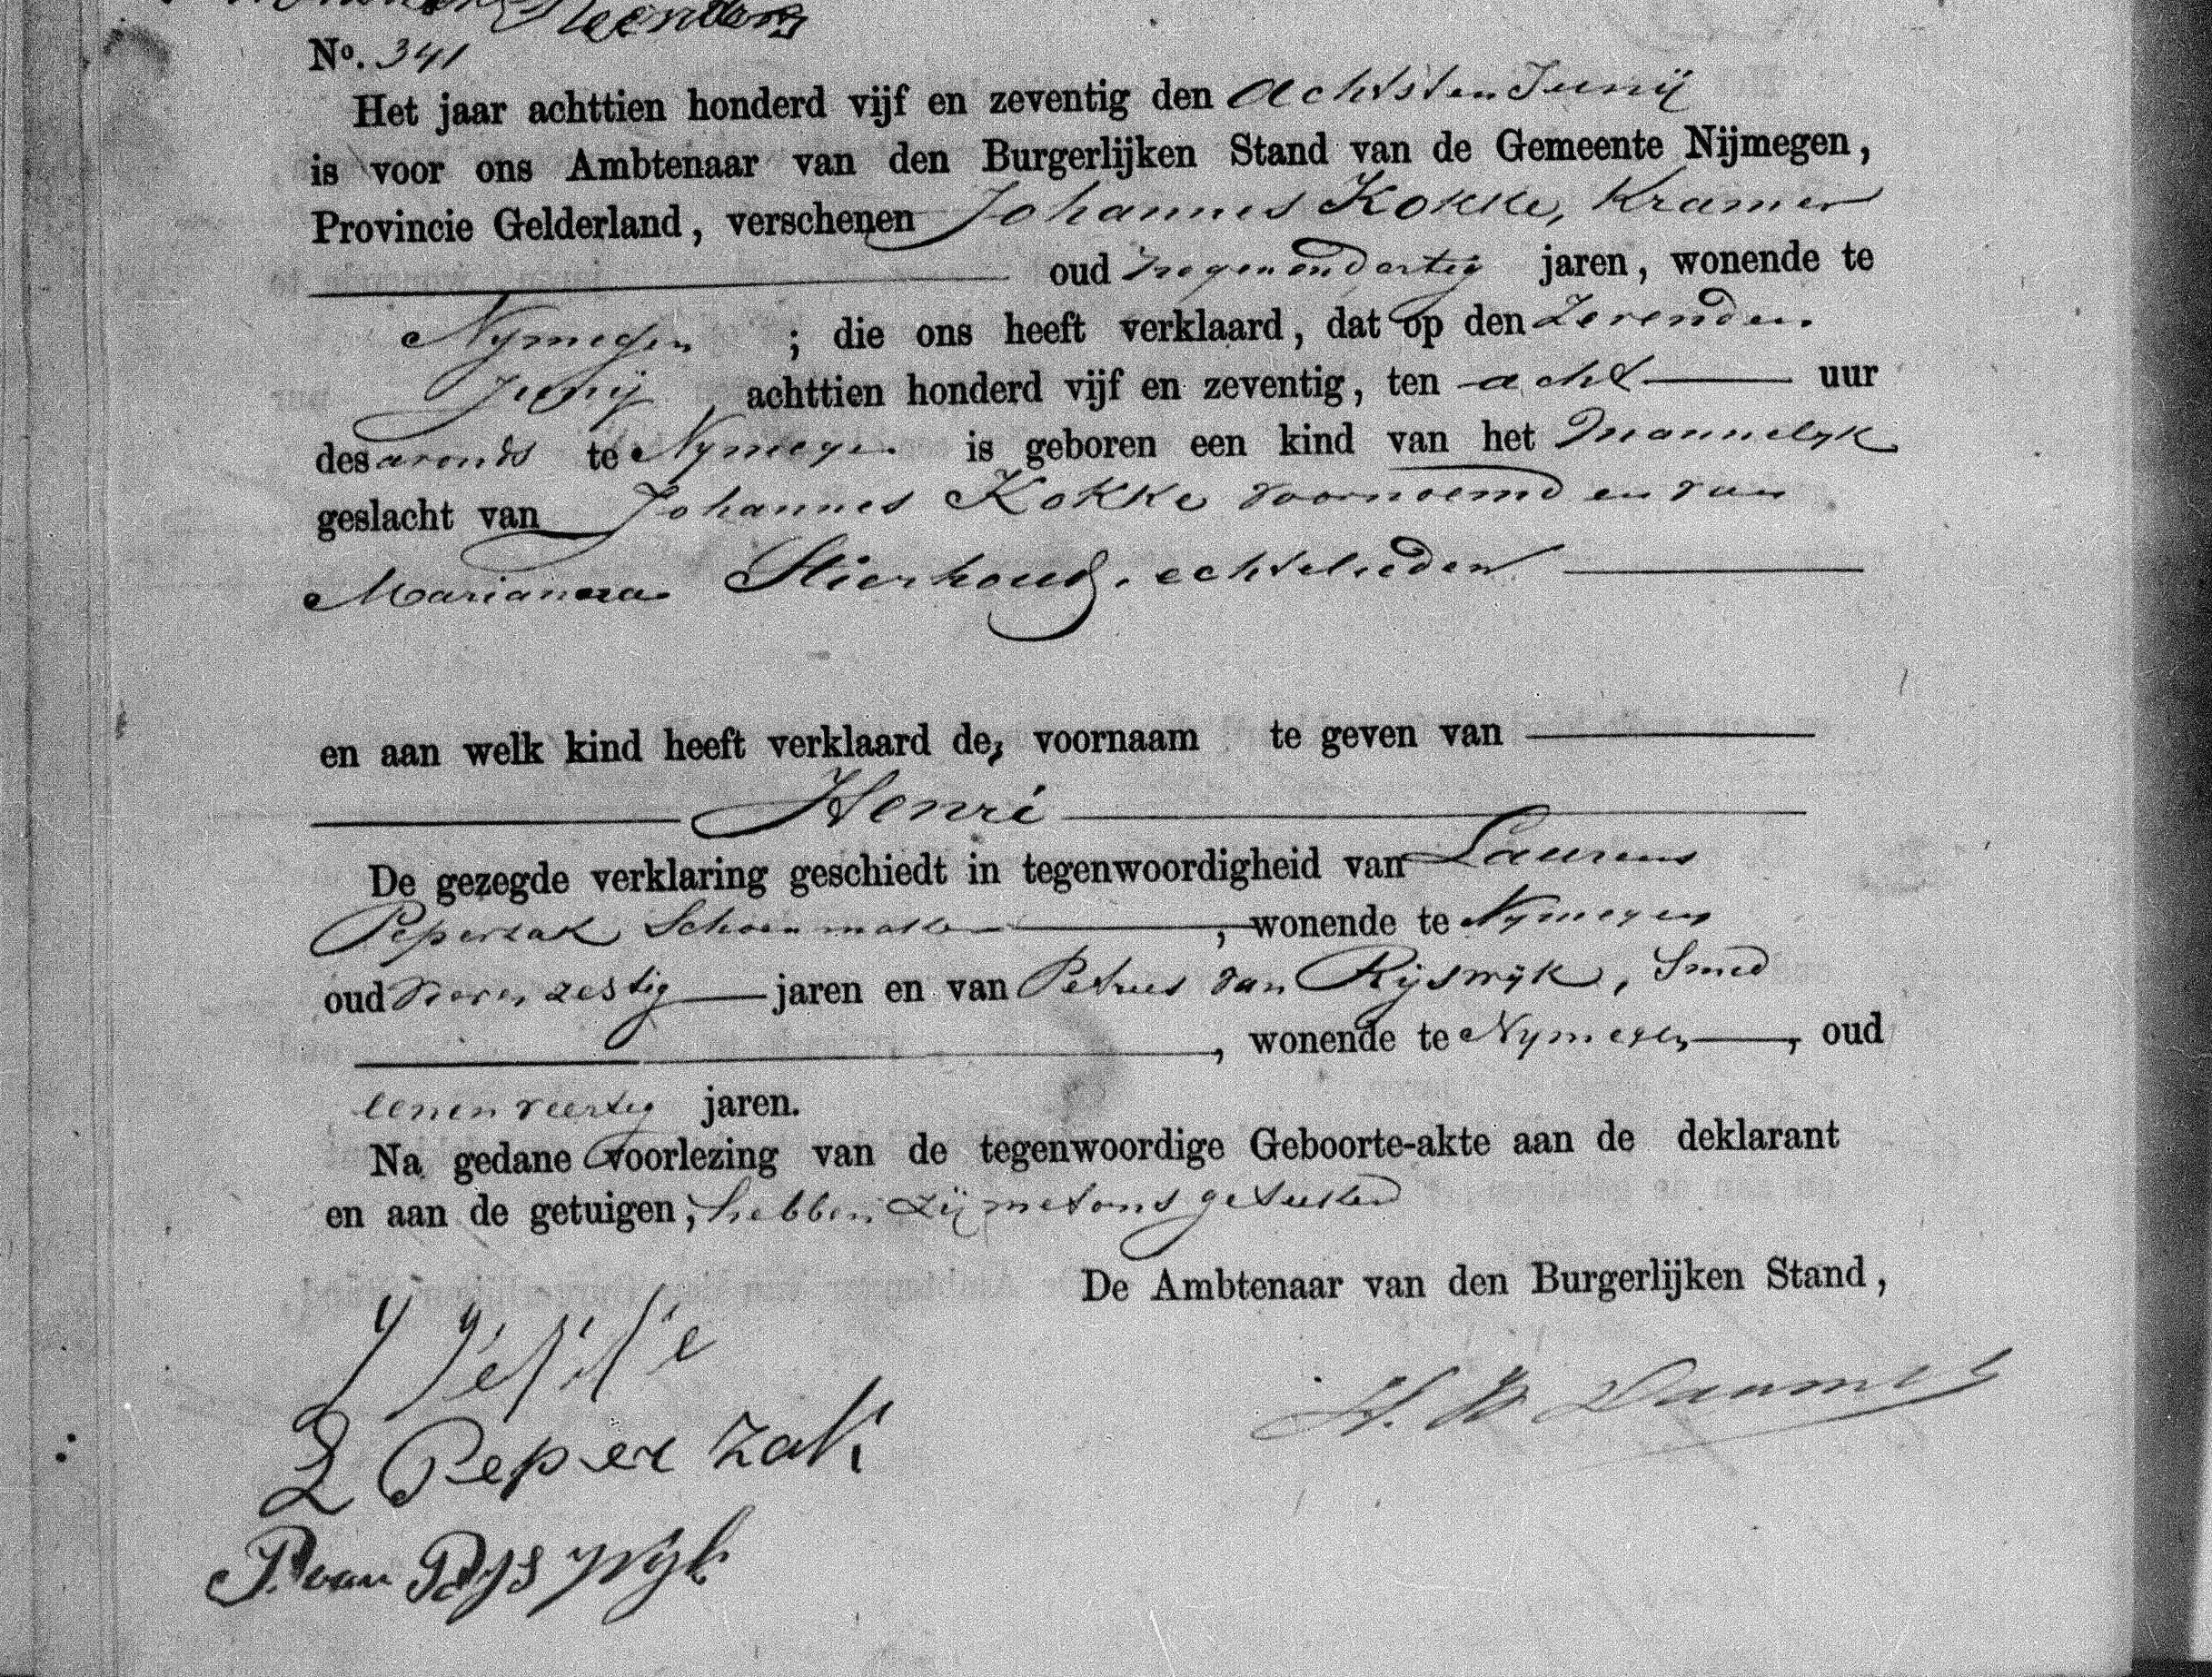 No. 341
Het jaar achttien honderd vijf en zeventig den achtsten Junij
is voor ons Ambtenaar van den Burgerlijken Stand van de Gemeente Nijmegen,
Provincie Gelderland, verschenen Johannes Kokke, Kramer
oud negenendertig jaren, wonende te
Nymegen ; die ons heeft verklaard, dat op den Zevenden
Junij achttien honderd vijf en zeventig, ten acht uur
des avonds te Nymegen is geboren een kind van het Mannelyk
geslacht van Johannes Kokke voornoemd en van
Marianna Stierhout, echtelieden
en aan welk kind heeft verklaard de, voornaam te geven van
Henri
De gezegde verklaring geschiedt in tegenwoordigheid van Laurens
Peperzak Schoenmaker, wonende te Nymegen
oud vierenzestig jaren en van Petrus van Rijswijk, Smed
, wonende te Nymegen, oud
eenenveertig jaren.
Na gedane voorlezing van de tegenwoordige Geboorte-akte aan de deklarant
en aan de getuigen, hebben zij met ons getekend
De Ambtenaar van den Burgerlijken Stand,
L Peper zak
P. van Rys wyk